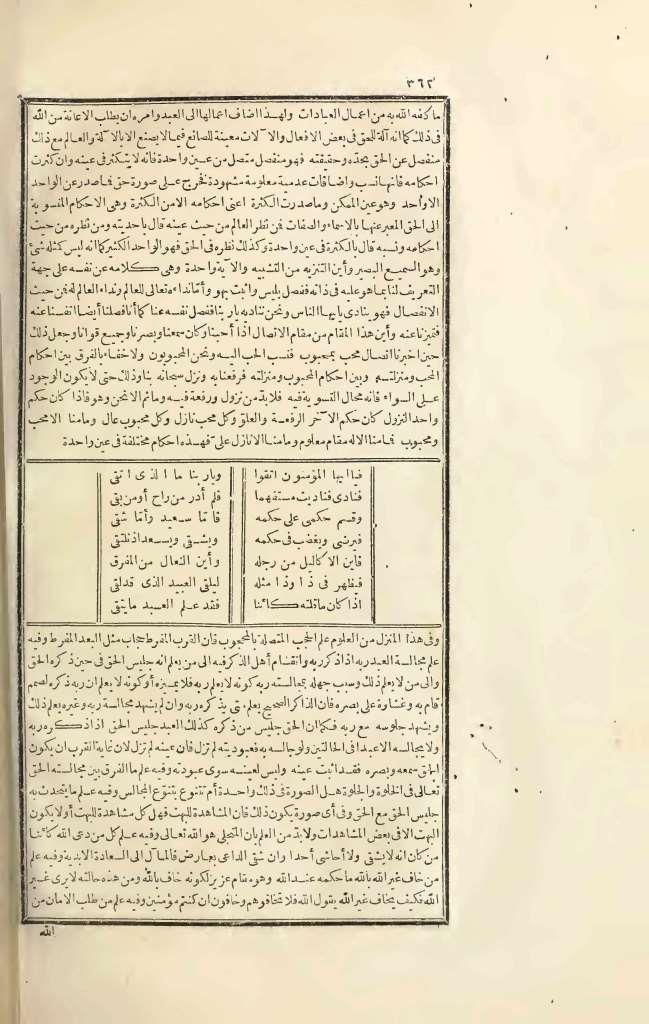 ٣٦٢
ما كلفه الله به من اعمال العبادات ولهذا اضاف اعمالها الى العبد وامره ان يطلب الاعانة من الله
فى ذلك كما انه آلة للحق فى بعض الافعال والآلات معينة للصانع فيما لا يصنع الا بالآلة والعالم مع ذلك
منفصل عن الحق بحده وحقيقته فهو منفصل متصل من عين واحدة فانه لا يتكثر فى عينه وان كثرت
احكامه فانها نسب واضافات عدمية معلومة مشهودة فخرج على صورة حق فما صدر عن الواحد
الا واحد وهو عين الممكن وما صدرت الكثرة اعنى احكامه الا من الكثرة وهى الاحكام المنسوبة
الى الحق المعبر عنها بالاسماء والصفات فمن نظر العالم من حيث عينه قال باحديته ومن نظره من حيث
احكامه ونسبه قال بالكثرة فى عين واحدة وكذلك نظره فى الحق فهو الواحد الكثير كما انه ليس كمثله شئ
وهو السميع البصير وأين التنزيه من التشبيه والآية واحدة وهى كلامه عن نفسه على جهة
التعريف لنا بما هو عليه فى ذاته ففصل بليس واثبت بهو وأما نداءه تعالى للعالم ونداء العالم له فمن حيث
الانفصال فهو ينادى يا ايها الناس ونحن نناديه يا ربنا ففصل نفسه عنا كما أنا فصلنا أيضا انفسنا عنه
فتميزنا عنه وأين هذا المقام من مقام الاتصال اذا أحبنا وكان سمعنا وبصرنا وجميع قوانا وجعل ذلك
حين اخبرنا اتصال محب بمحبوب فنسب الحب اليه ونحن المحبوبون ولا خفاء بالفرق بين احكام
المحب ومنزلته وبين احكام المحبوب ومنزلته فرفعنا به ونزل سبحانه بنا وذلك حتى لا يكون الوجود
على السواء فانه محال التسوية فيه فلا بد من نزول ورفعة فيه وما ثم الا نحن وهو فاذا كان حكم
واحد النزول كان حكم الآخر الرفعة والعلو وكل محب نازل وكل محبوب عال وما منا الا محب
ومحبوب فما منا الا له مقام معلوم وما منا الا نازل علىّ فهذه احكام مختلفة فى عين واحدة
فيا ايها المؤمنون اتقوا ويا ربنا ما الذى اتقى
فنادى فناديت مستفهما فلم أدر من راح أو من بقى
وقسم حكمى على حكمه فاما سعيد وأما شقى
فيرضى ويغضب فى حكمه ويشقى ويسعد اذ نلتقى
فاين الاكاليل من رجله وأين النعال من المفرق
فيظهر فى ذا وذا مثله ليلقى العبيد الذى قد لقى
اذا كان ما قلته كائنا فقد علم العبد ما يتقى
وفى هذا المنزل من العلوم علم الحجب المتصلة بالمحجوب فان القرب المفرط حجاب مثل البعد المفرط وفيه
علم مجالسة العبد ربه اذا ذكر ربه وانقسام أهل الذكر فيه الى من يعلم انه جليس الحق فى حين ذكره الحق
والى من لا يعلم ذلك وسبب جهله بمجالسته ربه كونه لا يعلم ربه فلا يميزه أو كونه لا يعلم ان ربه ذكره لصمم
قام به وغشاوة على بصره فان الذاكر الصحيح يعلم متى يذكره ربه وان لم يشهد مجالسة ربه وغيره يعلم ذلك
ويشهد جلوسه مع ربه فكما ان الحق جليس من ذكره كذلك العبد جليس الحق اذا ذكره ربه
ولا يجالسه الا عبد فى الحالتين ولو جالسه به فعبوديته لم تزل فان عينه لم تزل لان غاية القرب ان يكون
الحق سمعه وبصره فقد اثبت عينه وليس لعينه سوى عبودته وفيه علم ما الفرق بين مجالسته الحق
تعالى فى الخلوة والجلوة هل الصورة فى ذلك واحدة أم تتنوع بتنوع المجالس وفيه علم ما يتحدث به
جليس الحق مع الحق وفى أى صورة يكون ذلك فان المشاهدة للبهت فهل كل مشاهدة للبهت أو لا يكون
البهت الا فى بعض المشاهدات ولا بد من العلم بان المتجلى هو الله تعالى وفيه علم كل من دعى الله كائنا
من كان انه لا يشقى ولا أحاشى أحدا وان شقى الداعى بعارض فالمآل الى السعادة الابدية وفيه علم
من خاف غير الله بالله ما حكمه عند الله وهو مقام عزيز لكونه خاف بالله ومن هذه حالته لا يرى غير
الله فكيف يخاف غير الله يقول الله فلا تخافوهم وخافون ان كنتم مؤمنين وفيه علم من طلب الامان من
الله